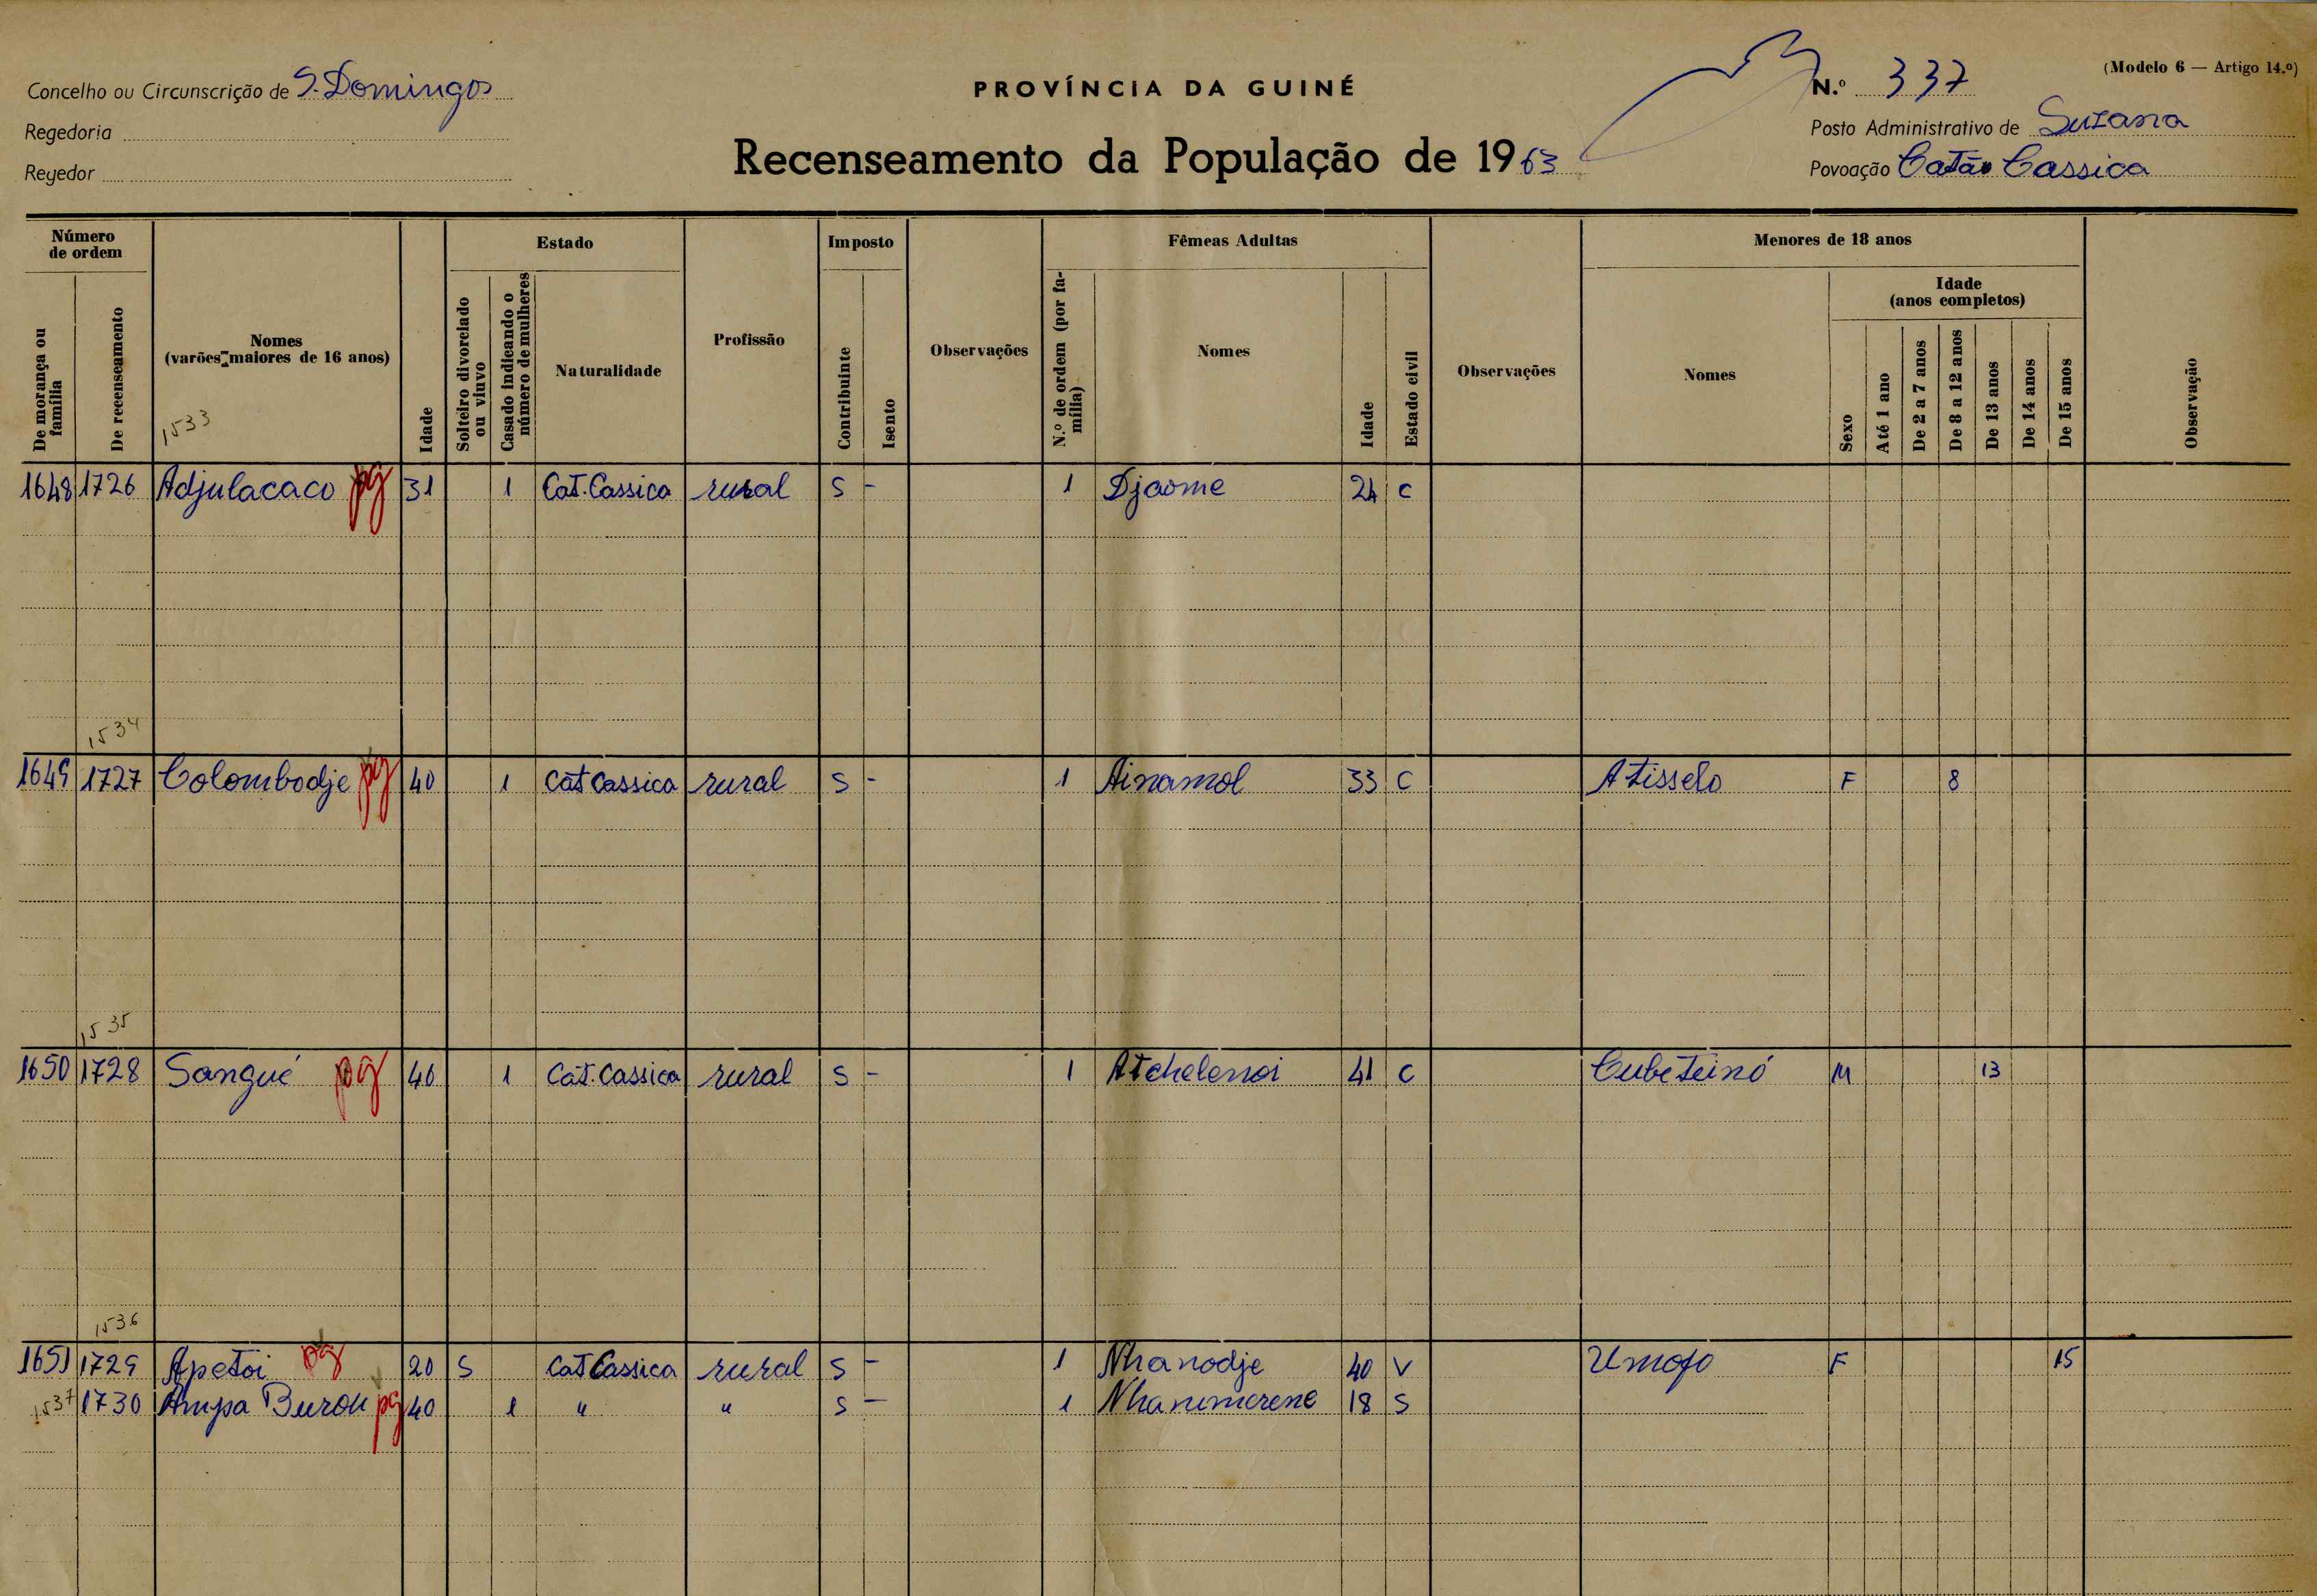 (Modelo 6 — Artigo 14.º)
Concelho ou Circunscrição de S. Domingos
PROVÍNCIA DA GUINÉ
N.º 337
Regedoria
Posto Administrativo de Suzana
Recenseamento da População de 1963
Reyedor
Povoação Catão Cassica
Número de ordem
Estado
Imposto
Fêmeas Adultas
Menores de 18 anos
Idade (anos completos)
De morança ou família
De recenseamento
Nomes (varões maiores de 16 anos)
Idade
Solteiro divorciado ou viuvo
Casado indicando o número de mulheres
Naturalidade
Profissão
Contribuinte
Isento
Observações
N.º de ordem (por família)
Nomes
Idade
Estado civil
Observações
Nomes
Sexo
Até 1 ano
De 2 a 7 anos
De 8 a 12 anos
De 13 anos
De 14 anos
De 15 anos
Observação
1533
1648 1726 Adjulacaco pg 31 1 Cat. Cassica rural S - 1 Djaome 24 C
1534
1649 1727 Colombodje pg 40 1 Cat Cassica rural S - 1 Ainamol 33 C Atisselo F 8
1535
1650 1728 Sangué pg 46 1 Cat. Cassica rural S - 1 Atchelenoi 41 C Cubeteinó M 13
1536
1651 1729 Apetoi pg 20 S Cat Cassica rural S - 1 Nhanodje 40 V Umofo F 15
1537 1730 Ampa Buron pg 40 1 " " S - 1 Nhanimerene 18 S